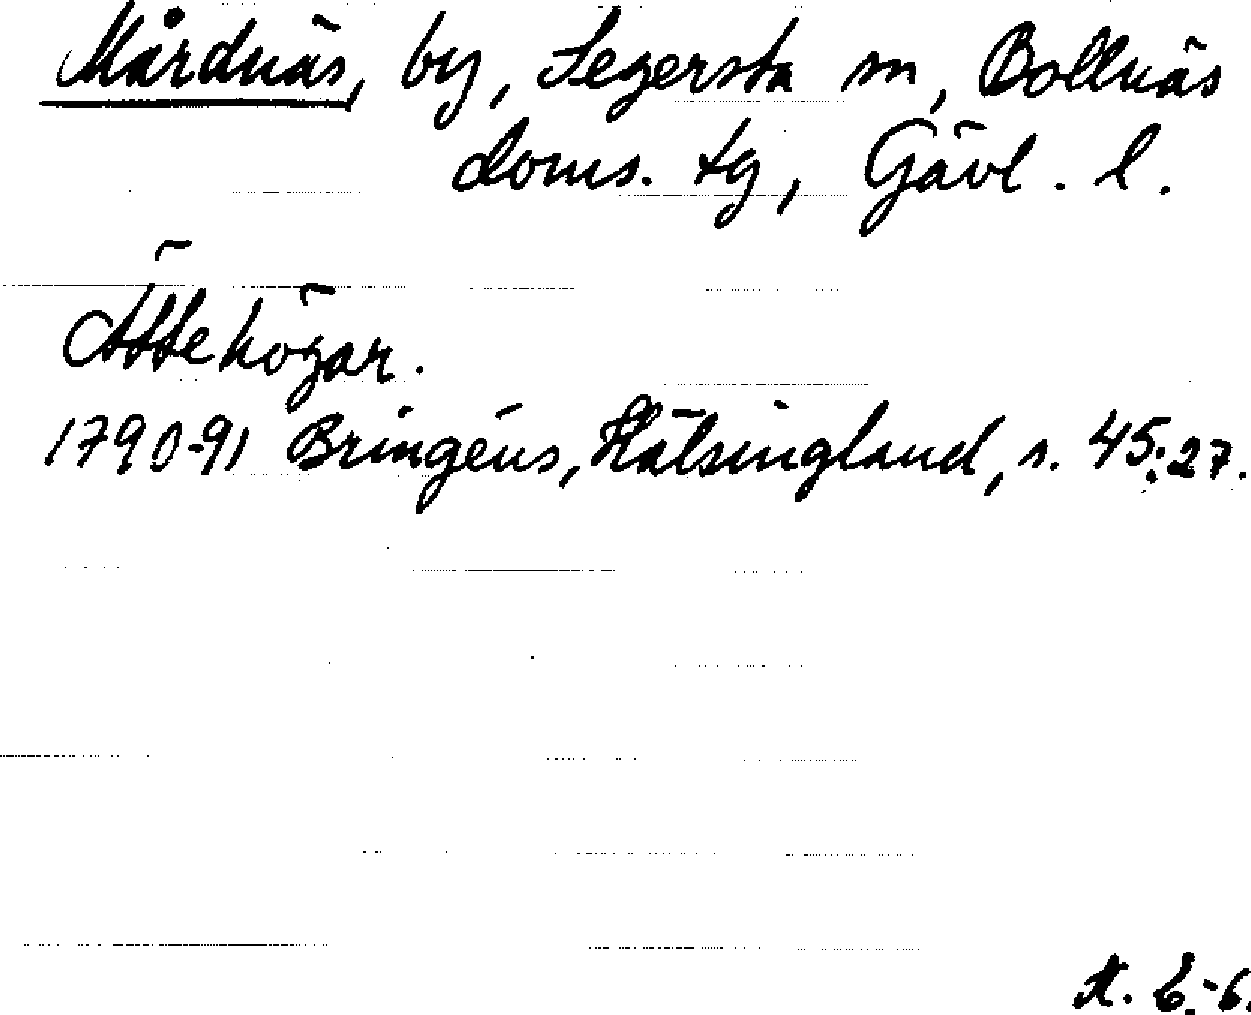 Mårdnäs, by, Segersta sn, Bollnäs
doms. tg, Gävl. l.
Ättehögar.
1790-91 Bringéus, Hälsingland, s. 45:27.